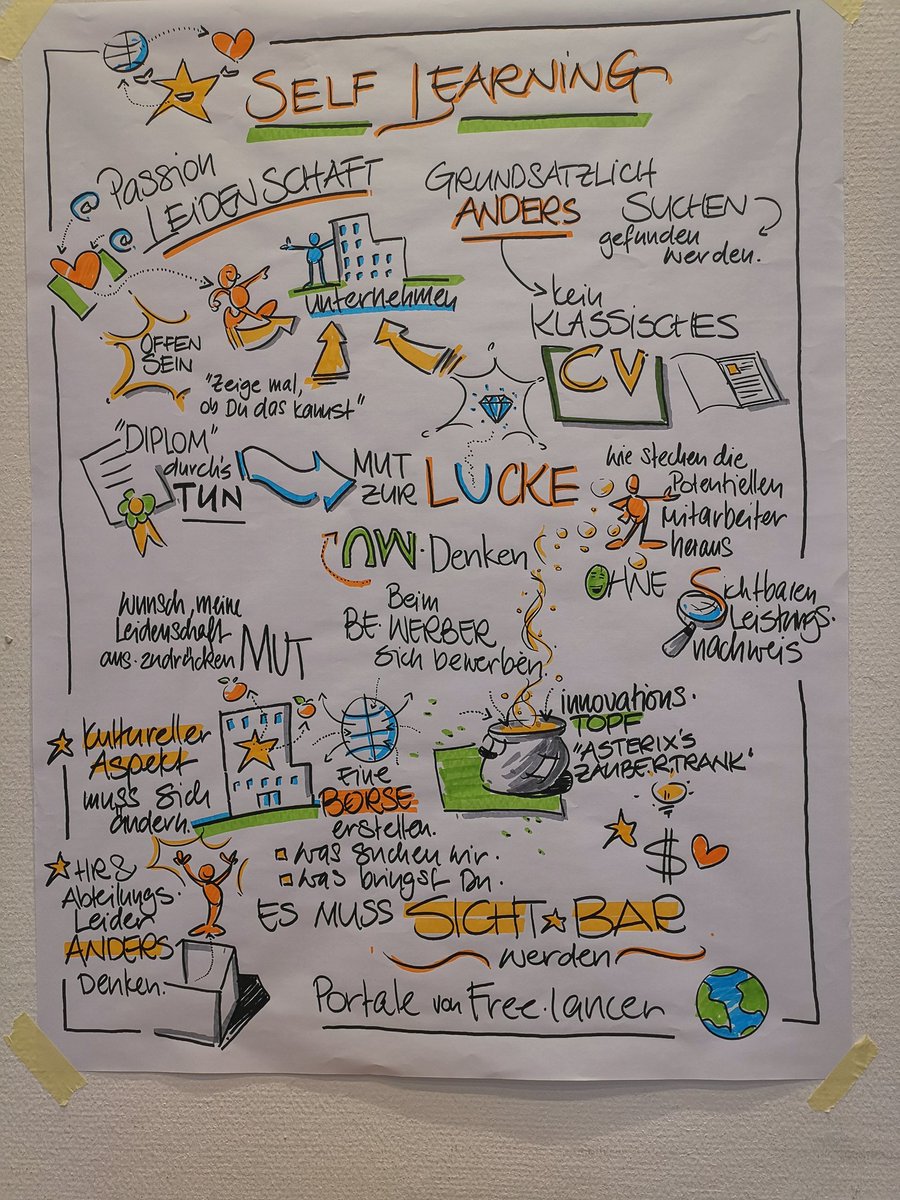 SELF LEARNING
@ Passion
LEIDENSCHAFT
@
GRUNDSATZLICH
ANDERS
SUCHEN
gefunden
werden.
unternehmen
OFFEN
SEIN
"Zeige mal,
ob Du das kannst"
kein
KLASSISCHES
CV
"DIPLOM"
durch's
TUN
MUT
ZUR LUCKE
wie stechen die
Potentiellen
Mitarbeiter
heraus
OHNE
Sichtbaren
Leistungs.
nachweis
UM.Denken
Beim
BE.WERBER
sich bewerben
Wunsch, meine
Leidenschaft
aus.zudrücken MUT
innovations.
TOPF
"ASTERIX'S
ZAUBERTRANK"
Kultureller
Aspekt
muss sich
ändern.
Eine
BÖRSE
erstellen.
was suchen wir.
was bringst Du.
$
HR &
Abteilungs.
Leiter
ANDERS
Denken.
ES MUSS SICHT BAR
werden
Portale von Free.lancer